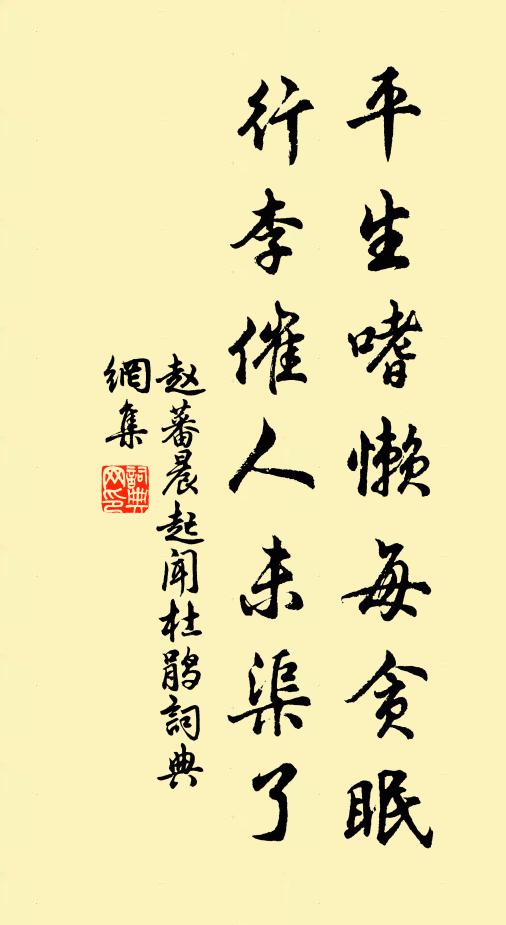 平生嗜懒每贪眠
行李催人未渠了
赵蕃晨起闻杜鹃詞典
網集
詞典
网印